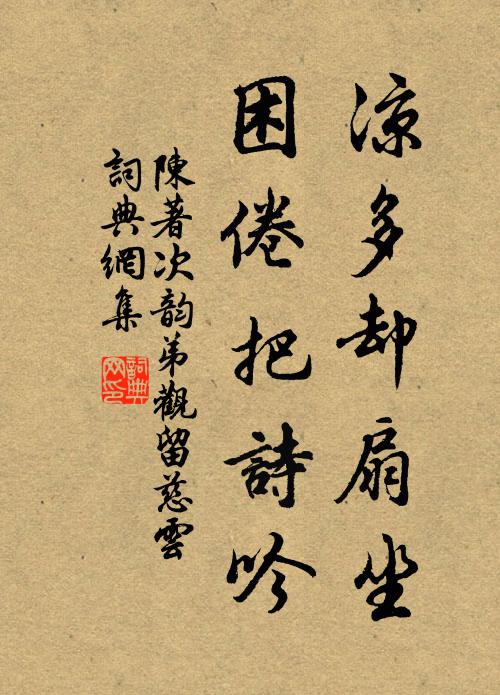 凉多却扇坐
困倦把詩吟
陳著次韵弟觀留慈雲
詞典網集
詞典
网印